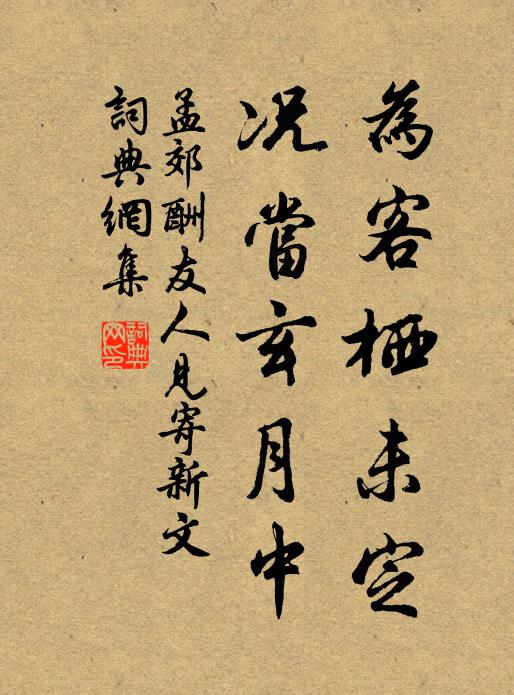 為客栖未定
況當玄月中
孟郊酬友人見寄新文
詞典網集
詞典網印